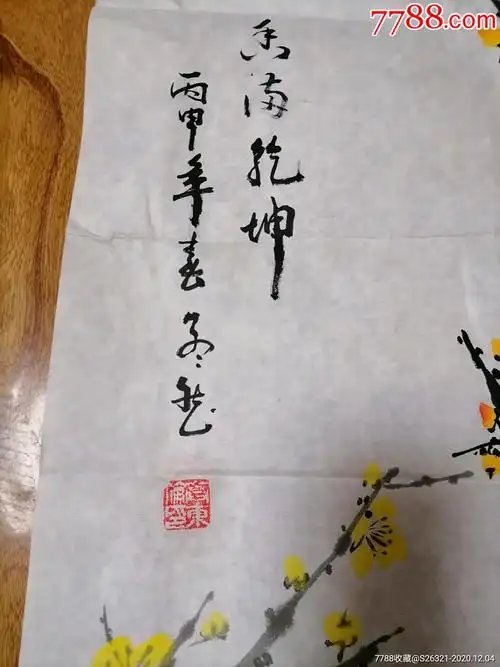 7788.com
香满乾坤
丙申年春
7788收藏@S26321-2020.12.04